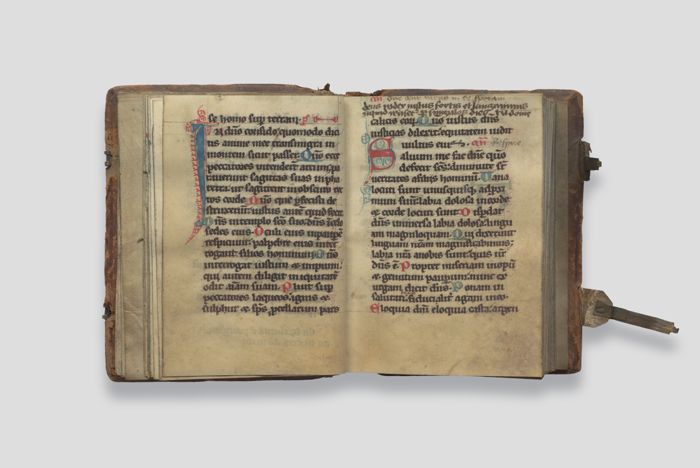 se homo sup terram.
N dño confido. quomodo dici
tis anime mee transmigra in
montem sicut passer. Qm̃ ecce
peccatores intenderūt arcum. pa
raverunt sagittas suas in pha
retra. ut sagittent in obscuro rec
tos corde. Qm̃ que pfecisti de
struxerunt. iustus autē quid fecit
Dñs in templo sc̃o suo. dñs in celo
sedes eius. Oculi eius in paupē
respiciunt. palpebre eius inter
rogant filios hominum. Dñs
interrogat iustum et impium.
qui autem diligit iniquitatē
odit aĩam suam. Pluit sup
peccatores laqueos. ignis et
sulphur et sp̃s pcellarum pars
deus iudex iustus fortis et
calicis eoꝝ. Qm̃ iustus dñs
iusticias dilexit. equitatem vidit
vultus eius.
Salvum me fac dñe qm̃
defecit sc̃s. diminute st̃
veritates a filiis hominum. Vana
locuti sunt unusquisq; ad proxi
mum suum. labia dolosa in corde
et corde locuti sunt. Disperdat
dñs universa labia dolosa. lingu
am magniloquam. Qui dixerunt
linguam nr̃am magnificabimus.
labia nr̃a a nobis sunt. quis nr̃
dñs ẽ. Propter miseriam inopū
et gemitum pauperum. nunc ex
urgam dicit dñs. Ponam in
salutari. fiducialiter agam in eo.
Eloquia dñi eloquia casta. argen